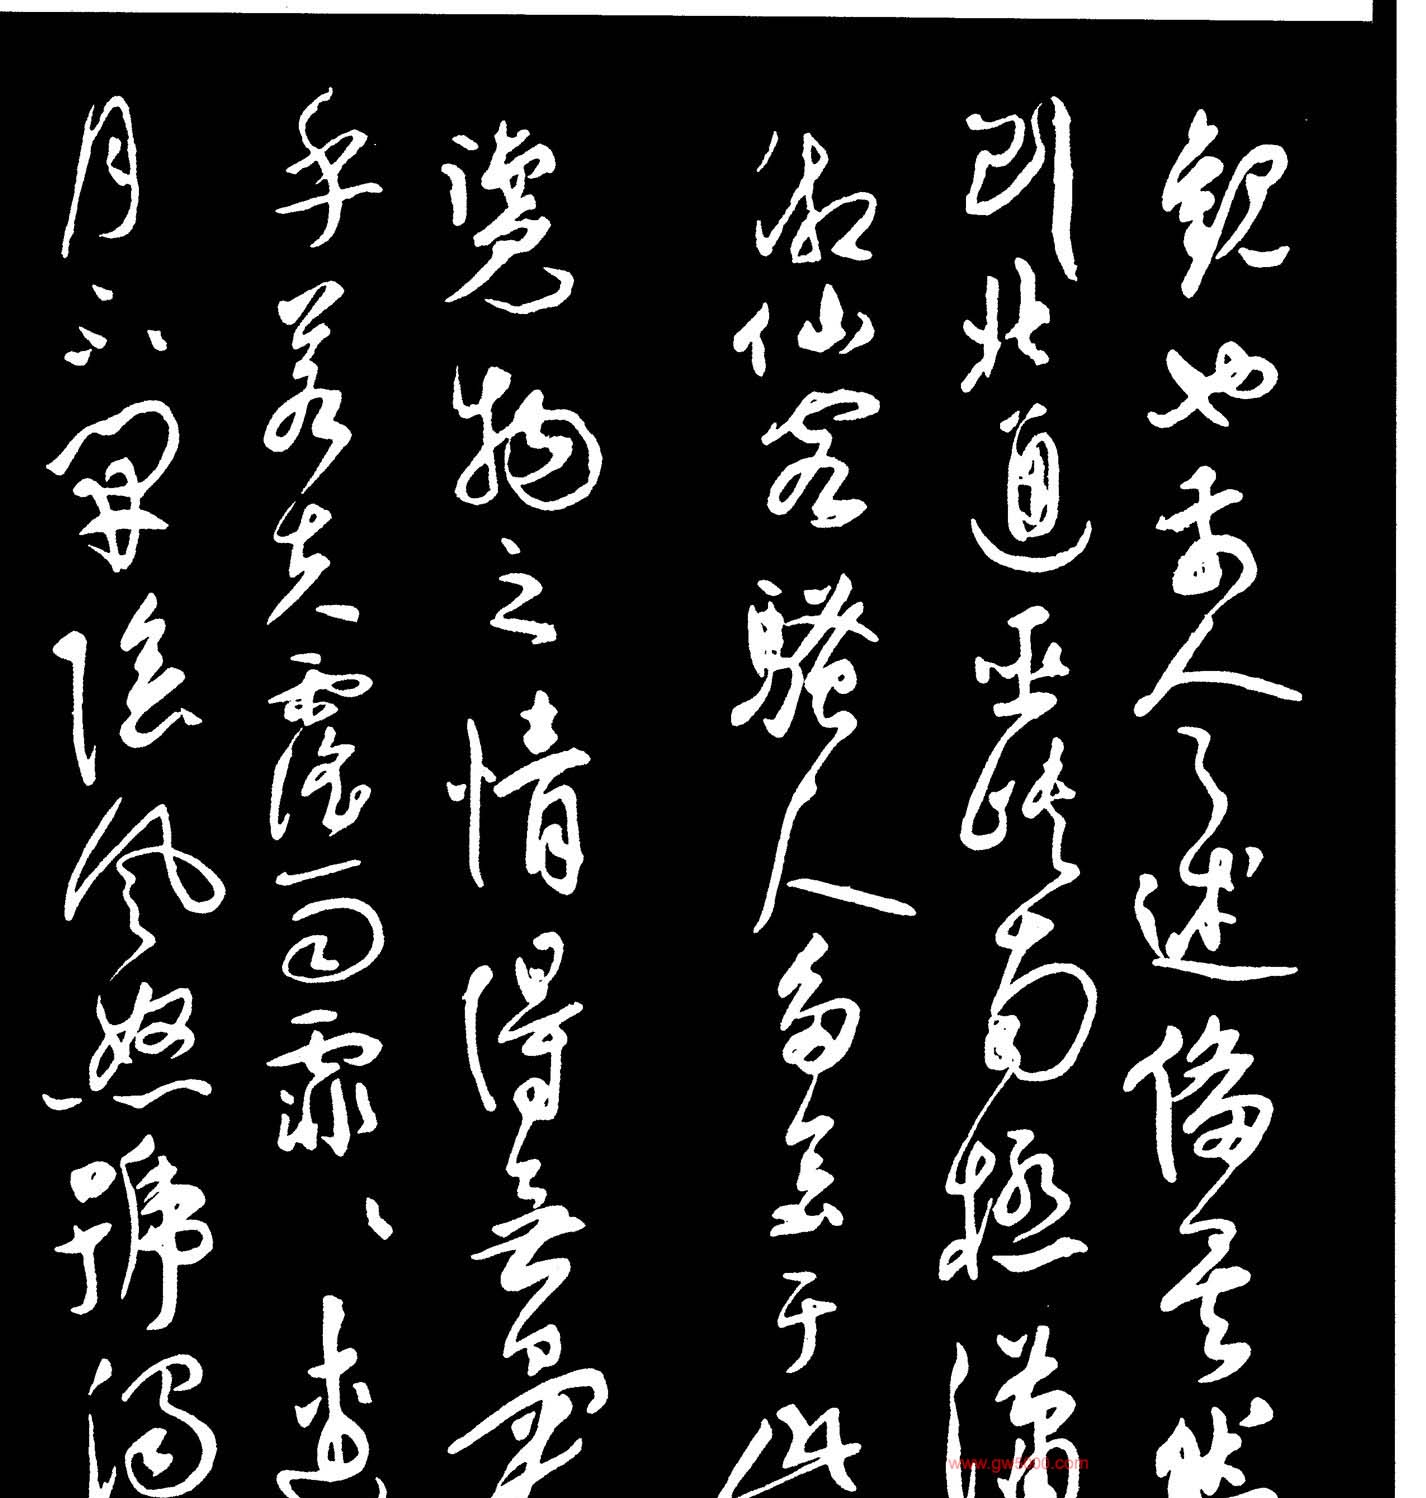 觀也前人之述備矣然
則北通巫峽南極瀟
湘仙客騷人多會于此
覽物之情得無異
乎若夫霪雨霏〻連
月不開陰風怒號濁
www.gw5000.com